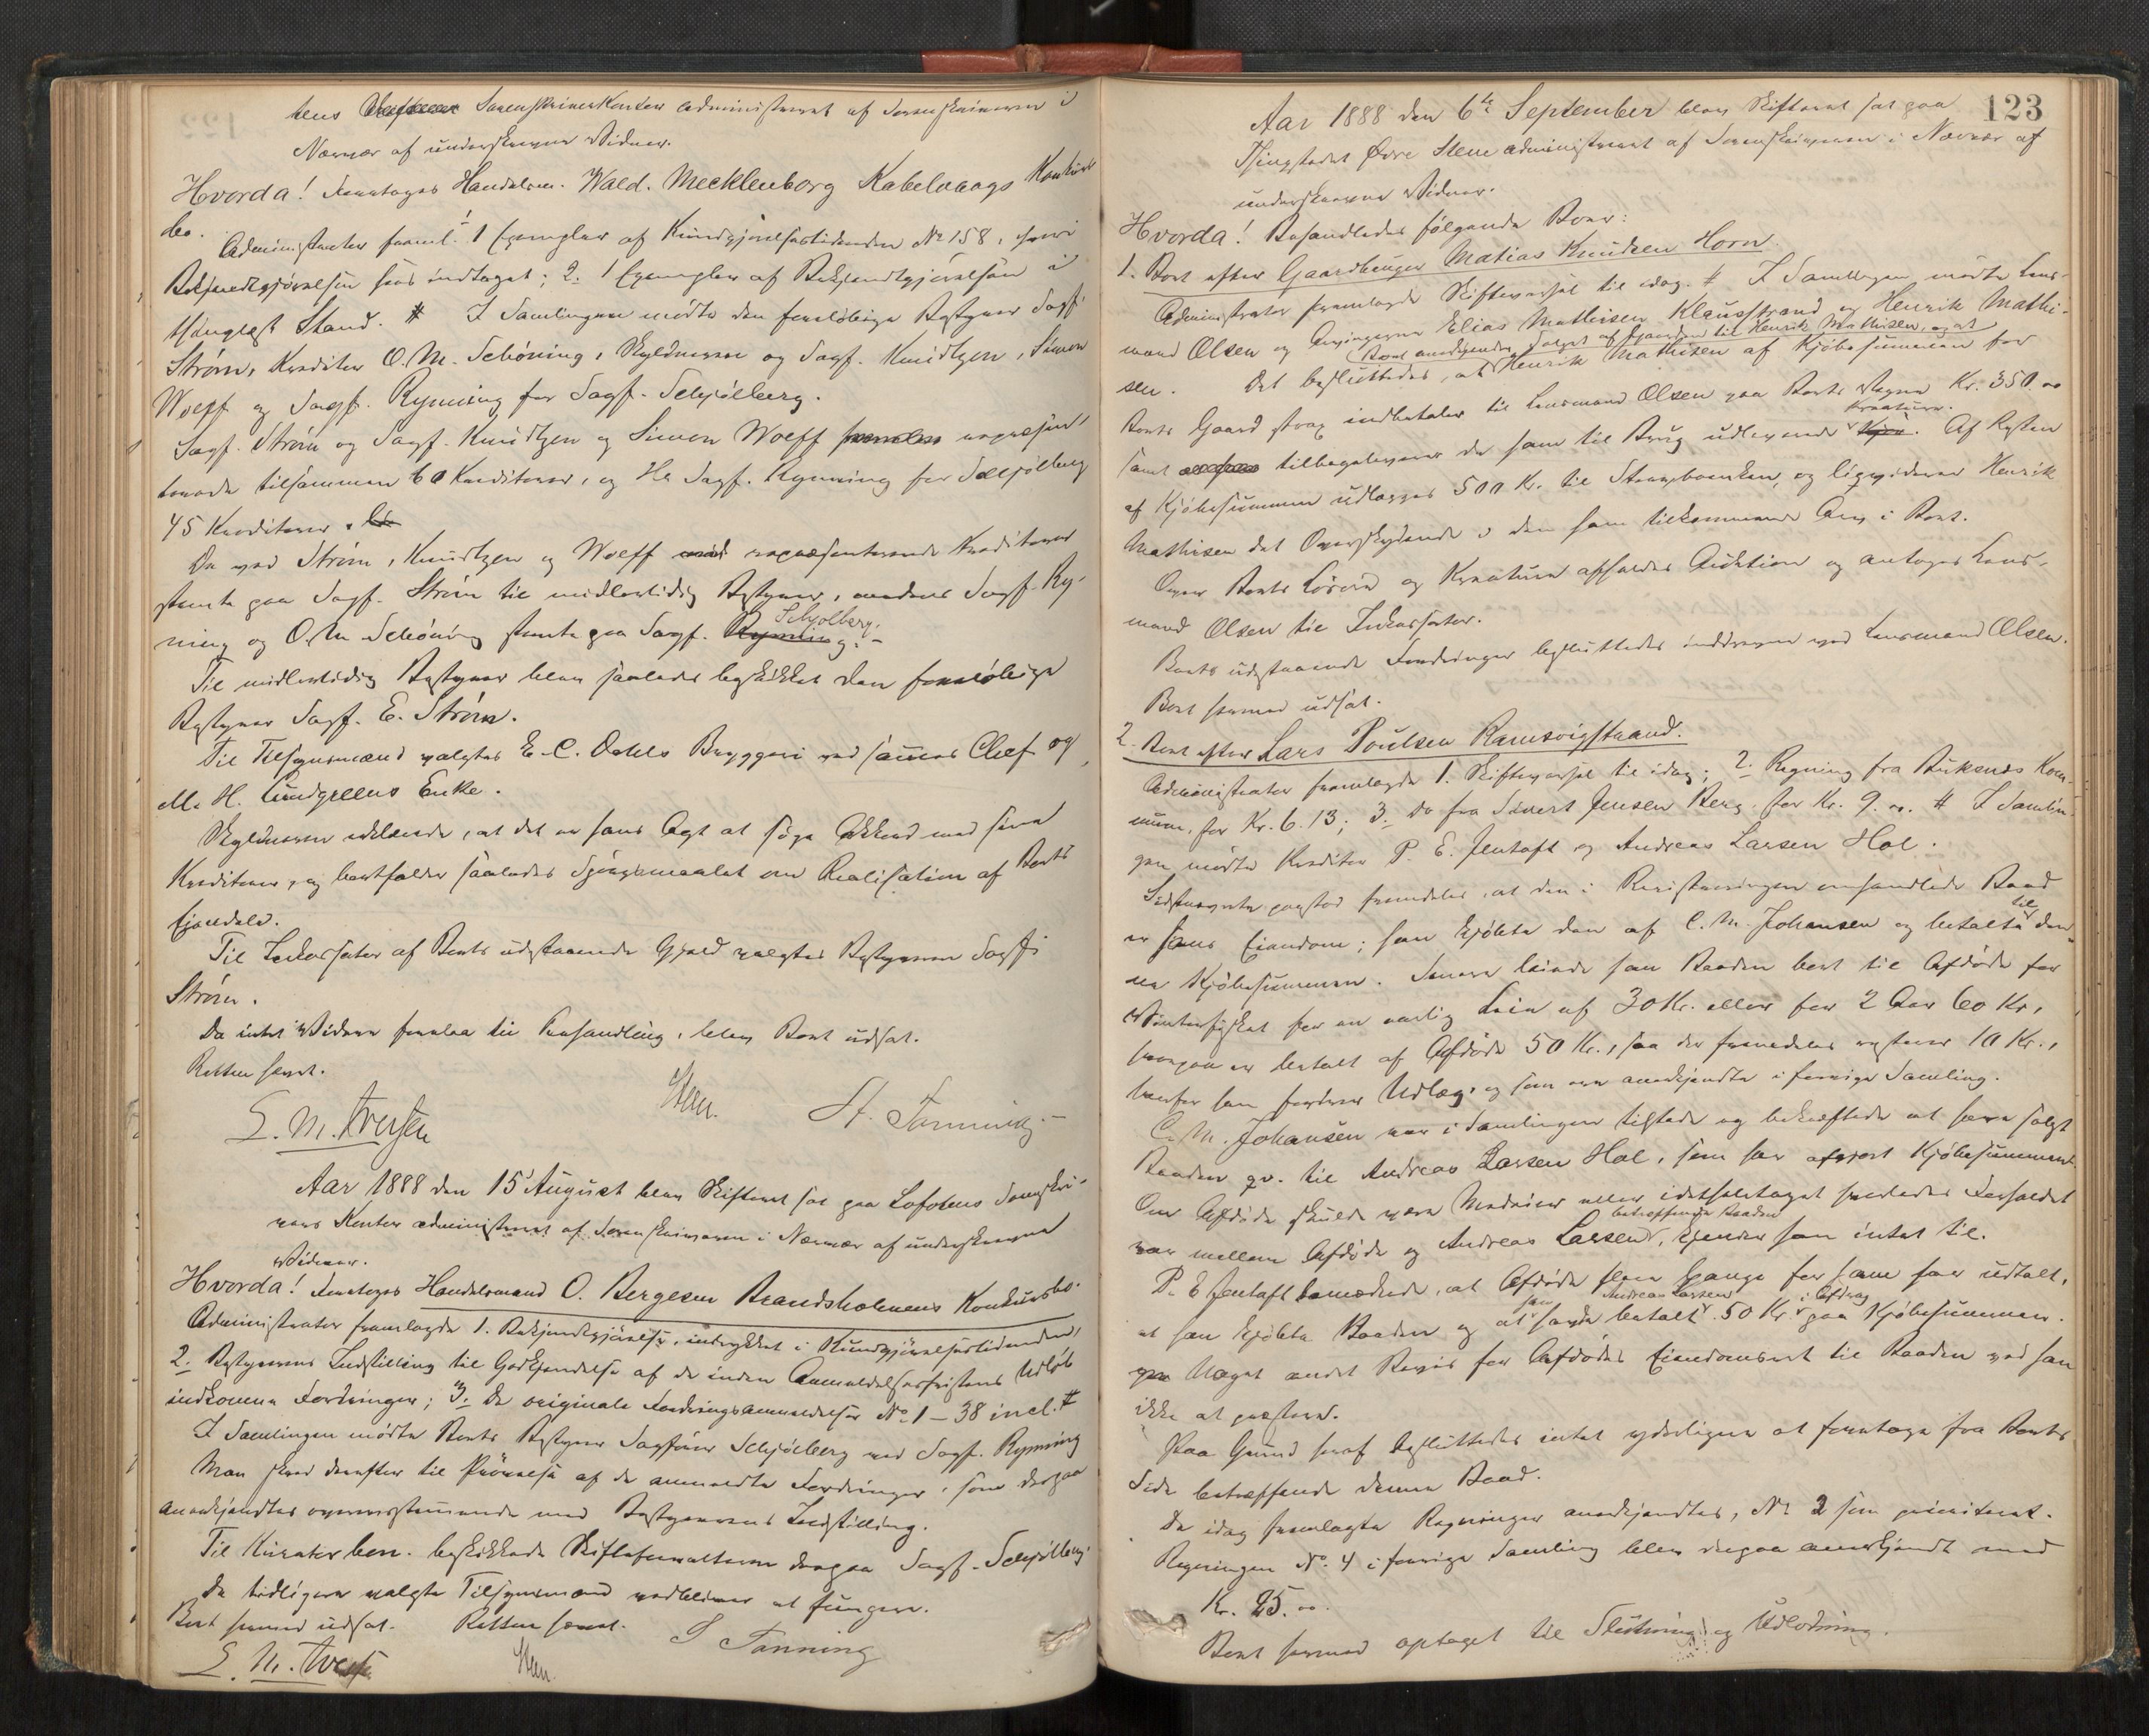 tens Sorenskriverkontor administreret af Sorenskriveren i
Nærvær af underskrevne Vidner.
Hvorda! Foretoges Handelsm. Wald. Mecklenborg Kabelvaags Konkurs
bo.
Administrator freml. 1. 1 Exemplar af Kundgjørelsestidenden No 158, hvori
Bekjendtgjørelsen fees indtaget; 2. 1 Exemplar af Bekjendtgjørelsen i
thinglæst Stand. # I Samlingen mødte den foreløbige Bestyrer Sagf.
Strøm, Kreditor O. M. Schöning, Skyldneren og Sagf. Knudtzen, Simon
Wolff og Sagf. Rynning for Sagf. Schjølberg.
Sagf. Strøm og Sagf. Knudtzen og Simon Wolff repræsen-
terede tilsammen 60 Kreditorer, og Hr Sagf. Rynning for Schjølberg
45 Kreditorer.
De ved Strøm, Knudtzen og Wolff repræsenterede Kreditorer
stemte paa Sagf. Strøm til midlertidig Bestyrer, medens Sagf. Ry-
ning og O. M Schöning stemte paa Sagf. Rynning. Schjolberg. -
Til midlertidig Bestyrer blev saaledes beskikket den foreløbige
Bestyrer Sagf. E. Strøm.
Til Tilsynsmænd valgtes E. C. Dahls Bryggeri ved sammes Chef og
M. H. Lundgreens Enke.
Skyldneren erklærede, at det er hans Agt at søge Akkord med sine
Kreditorer, og bortfalder saaledes Spørgsmaalet om Realisation af Boets
Eiendele.
Til Inkassator af Boets udestaaende Gjæld valgtes Bestyreren Sagf.
Strøm.
Da intet Videre forelaa til Behandling, blev Boet udsat.
Retten hævet.
E. M. Iversen
St. Tanning. -
Aar 1888 den 15 August blev Skifteret sat paa Lofotens Sorenskri-
vers Kontor administreret af Sorenskriveren i Nærvær af underskrevne
Vidner.
Hvorda! Foretoges Handelsmand O. Bergesen Brandsholmens Konkursbo.
Administrator fremlagde 1. Bekjendtgjørelse, indrykket i Kundgjørelsestidenden,
2. Bestyrerens Indstilling til Godkjendelse af de inden Anmeldelsesfristens Udløb
indkomne Fordringer; 3. De originale Fordringsanmeldelser No. 1 - 38 incl. #
I Samlingen mødte Boets Bestyrer Sagfører Schjølberg ved Sagf. Rynning
Man skred derefter til Prøvelse af de anmeldte Fordringer, som derpaa
anerkjendtes overensstemmende med Bestyrerens Indstilling.
Til Kurator ben. beskikkede Skifteforvalteren derpaa Sagf. Schjølberg.
De tidligere valgte Tilsynsmænd vedbliver at fungere.
Boet hermed udsat. Retten hævet.
E. M. Iversen
S Tanning
123
Aar 1888 den 6te September blev Skifteret sat paa
Thingstedet Øvre Stene administreret af Sorenskriveren i Nærvær af
underskrevne Vidner.
Hvorda! Behandledes følgende Boer:
1. Boet efter Gaardbruger Matias Knudsen Horn
Administrator fremlagde Skiftevarsel til idag. # I Samlingen mødte Lens-
mand Olsen og Arvingerne Elias Mathisen Klausstrand og Henrik Mathi-
Boet anerkjender Salget af Gaarden til Henrik Mathisen, og at
sen. Det besluttedes, at Henrik Mathisen af Kjøbesummen for
Boets Gaard strax indbetaler til Lensmand Olsen paa Boets Vegne Kr. 350.00
Kreature.
samt tilbageleverer de ham til Brug udleverede. Af Resten
af Kjøbesummen udlægges 500 Kr. til Strængbanken, og ligviderer Henrik
Mathisen det Overskydende i den ham tilkommende Arv i Boet.
Over Boets Løsøre og Kreature afholdes Auktion og antages Lens-
mand Olsen til Inkassator.
Boets udestaaende Fordringer besluttedes inddrevne ved Lensmand Olsen.
Boet hermed udsat.
2. Boet efter Lars Poulsen Ramsvigstrand.
Administrator fremlagde 1. Skiftevarsel til idag; 2. Regning fra Buksnes Kom-
mune, for Kr. 6.13; 3. Do fra Sivert Jensen Berg for Kr. 9.00. # I Samlin-
gen mødte Kreditor P. E. Jentoft og Andreas Larsen Hol.
Sidstnævnte paastod fremdeles, at den i Registreringen omhandlede Baad
er hans Eiendom; han kjøbte den af C. M. Johansen og betalte til den-
ne Kjøbesummen. Senere leiede han Baaden bort til Afdøde for
Vinterfisket for en aarlig Leie af 30 Kr. eller for 2 Aar 60 Kr,
hvorpaa er betalt af Afdøde 50 Kr., saa der fremdeles resterer 10 Kr.,
hvorfor han fordrer Udlæg, og som er anerkjendte i forrige Samling.
C. M. Johansen var i Samlingen tilstede og bekræftede at have solgt
Baaden qv. til Andreas Larsen Hol, som har afgjort Kjøbesummen.
Om Afdøde skulde være Medeier eller idetheletaget hvorledes Forholdet
betræffende Baaden
var mellem Afdøde og Andreas Larsen, kjender han intet til.
P. E Jentoft bemærkede, at Afdøde flere Gange for ham har udtalt,
han Andreas Larsen i Afdrag
at han kjøbte Baaden og at havde betalt 50 Kr. paa Kjøbesummen.
Noget andet Bevis for Afdødes Eiendomsret til Baaden ved han
ikke at præstere.
Paa Grund heraf besluttedes intet yderligere at foretage fra Boets
Side betræffende denne Baad.
De idag fremlagte Regninger anerkjendtes, No 2 som prioriteret.
Regningen No. 4 i forrige Samling blev derpaa anerkjendt med
Kr. 25.00.
Boet hermed optaget til Slutning og Udlodning.